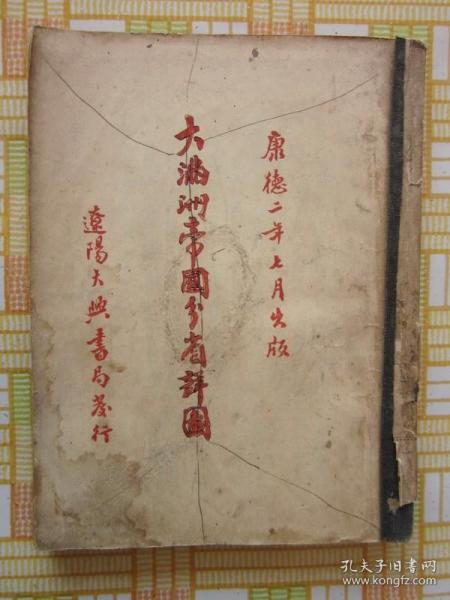 康德二年七月出版
大満洲帝國分省詳圖
遼陽大興書局發行
孔夫子旧书网
www.kongfz.com